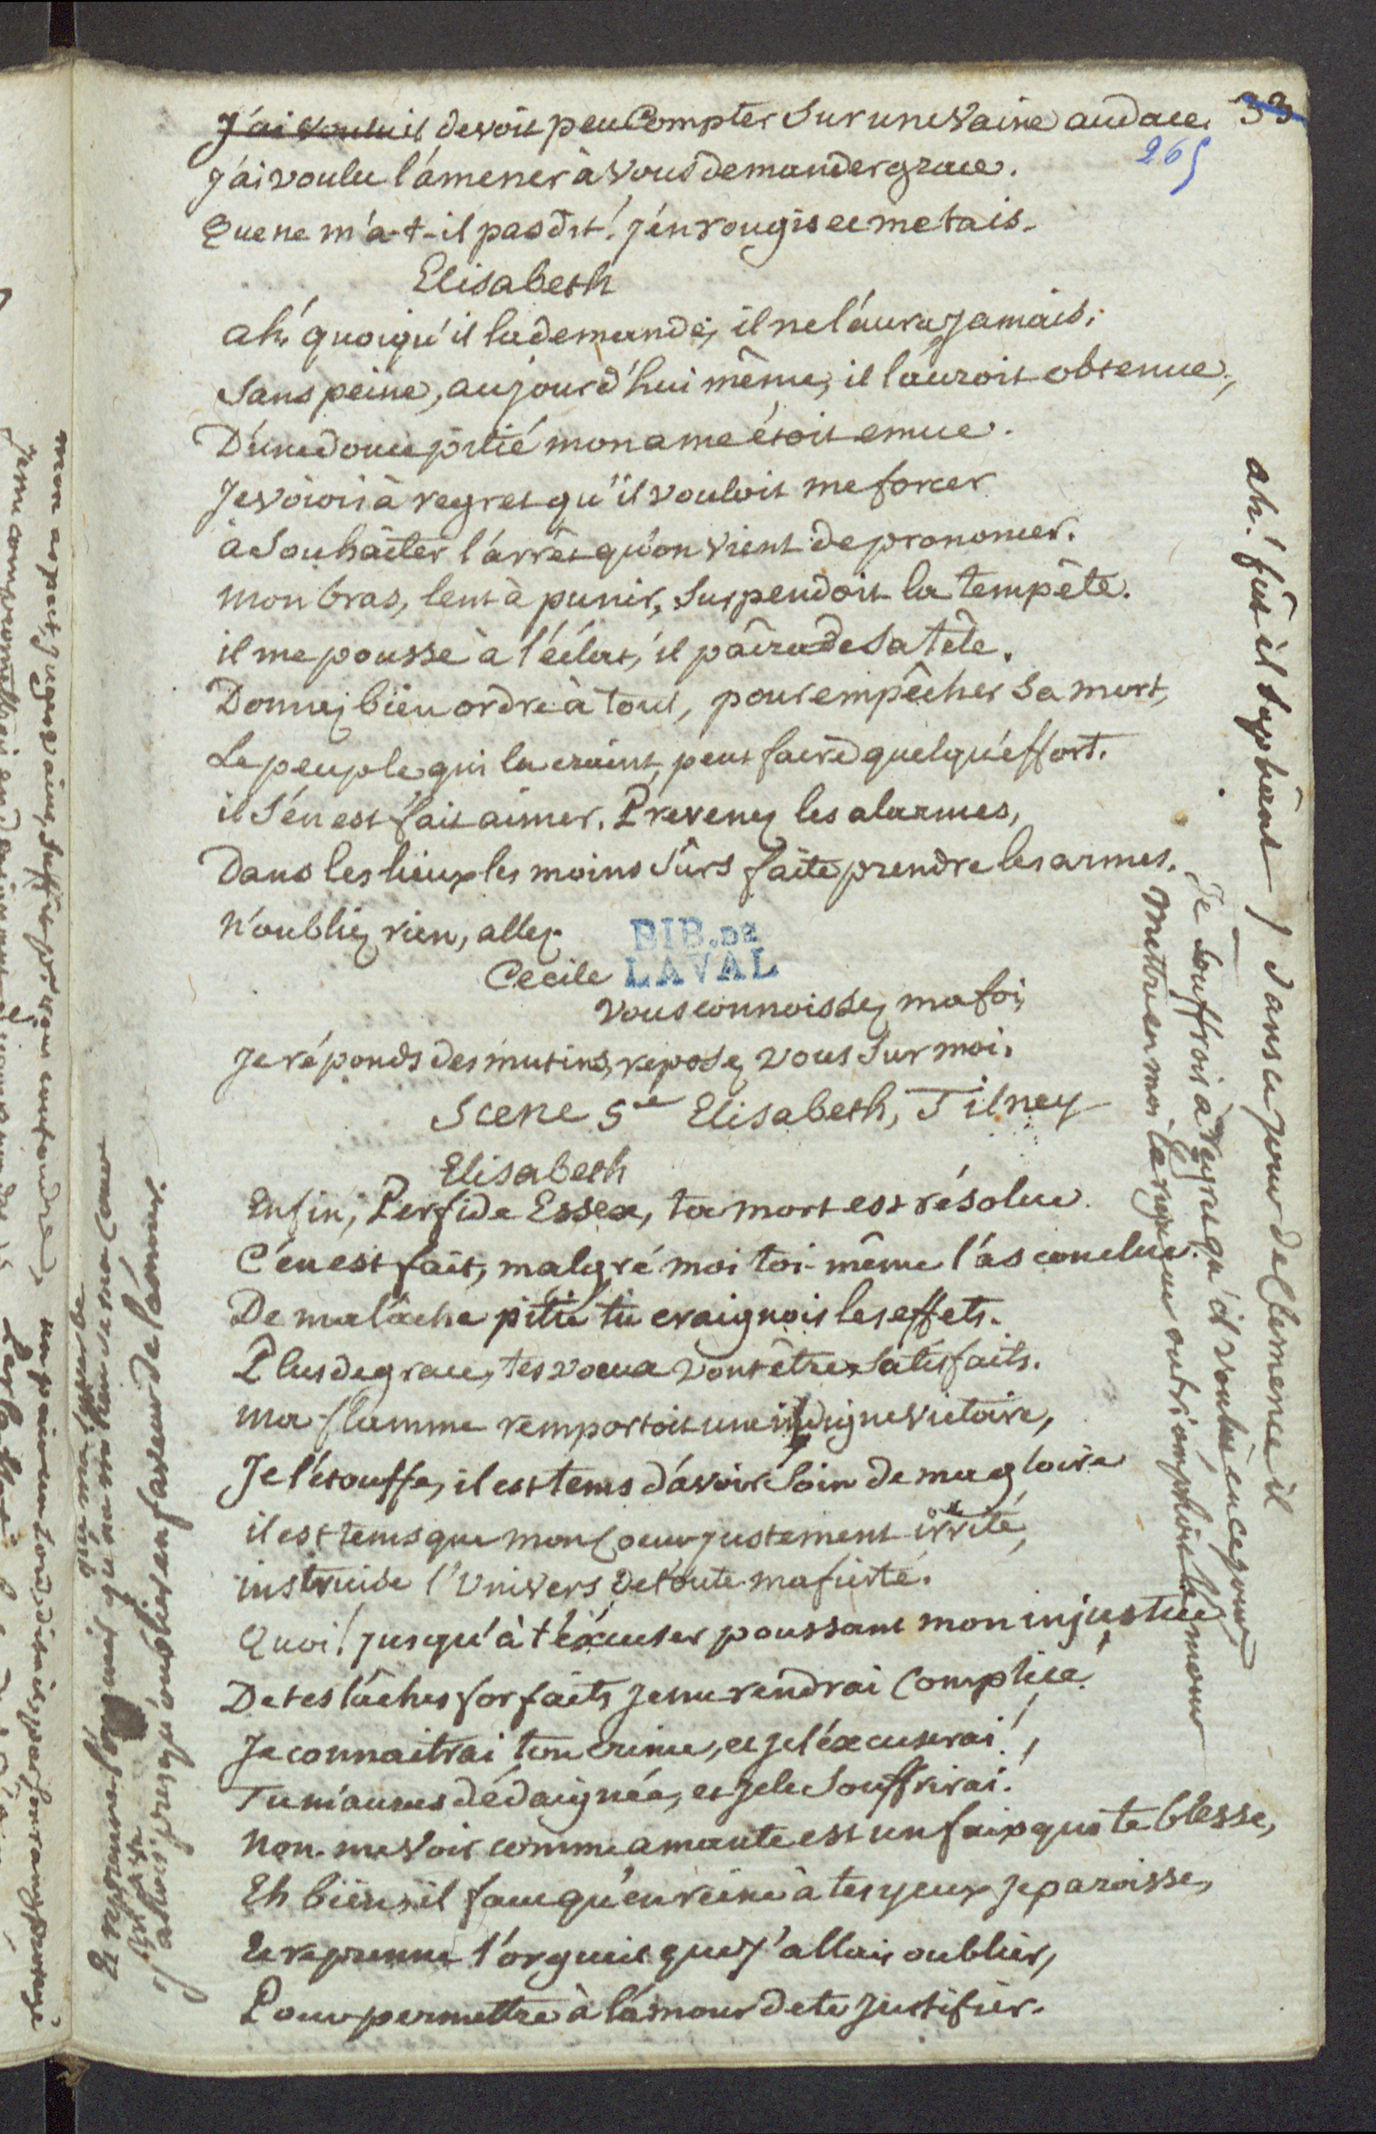 J'ai voulu il devoit peu Compter Sur une vaine audace. 33
265
j'ai voulu l'amener à vous demander grace.
Que ne m'a-t-il pas dit! j'en rougis et me tais.
Elisabeth
ah! quoiqu'il la demande, il ne l'aura jamais.
Sans peine, aujourd'hui même, il l'auroit obtenue,
D'une douce pitié mon ame étoit emue.
Je voiois à regret qu'il vouloit me forcer
à Souhaiter l'arrêt qu'on vient de prononcer.
mon bras, lent à punir, Suspendoit la tempête.
il me pousse à l'éclat, il paîra de Sa tête.
Donnez bien ordre à tout, pour empêcher Sa mort,
Le peuple qui la craint, peut faire quelqu'effort.
il S'en est fait aimer. Prevenez les alarmes,
Dans les lieux les moins Sûrs faite prendre les armes.
n'oubliez rien, allez.
BIB. DE
LAVAL
Cecile
vous connoissez ma foi,
Je réponds des mutins, reposez vous Sur moi.
Scene 5e Elisabeth, Tilney
Elisabeth
Enfin, Perfide Essex, ta mort est résolue.
C'en est fait, malgré moi toi-même l'as conclue.
De ma lâche pitié tu craignois les effets.
Plus de grace, tes voeux vont être Satisfaits.
ma flamme remportoit une indigne victoire,
Je l'étouffe, il est tems d'avoir Soin de ma gloire
il est tems que mon Coeur justement irrité,
instruise l'Univers de toute ma fierté.
Quoi! jusqu'à t'éxcuser poussant mon injustice
De tes lâches forfaits je me rendrai Complice!
Je connaitrai ton crime, et je l'éxcuserai!
Tu m'auras dédaignée, et je le Souffrirai!
non. me voir comme amante est un faix qui te blesse,
Eh bien, il faut qu'en reine à tes yeux je paroisse,
Et reprenne l'orgueil que j'allais oublier,
Pour permettre à l'amour de te justifier.
ah! fût-il Suppliant / dans ce jour de Clemence il
Je Souffrois à regret qu'il voulut en ce jour,
Mettre en moi la rigueur où triomphoit l'amour
Et reprenne l'orgueil
j'allois presqu'oublier en faveur de l'amour.